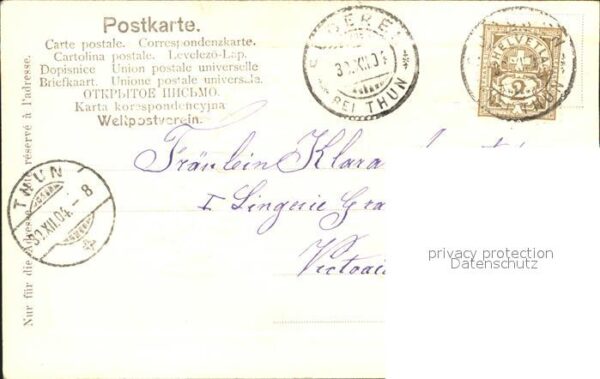 Postkarte.
Carte postale. Correspondenzkarte.
Cartolina postale. Levelező-Lap.
Dopisnice Union postale universelle
Briefkaart. Unione postale universale.
ОТКРЫТОЕ ПИСЬМО.
Karta korespondencyjna
Weltpostverein.
Nur für die Adresse réservé à l'adresse.
BEI THUN
HELVETIA
2
THUN
XII.04.-8
Fräulein Klara
I Lingerie
privacy protection
Datenschutz